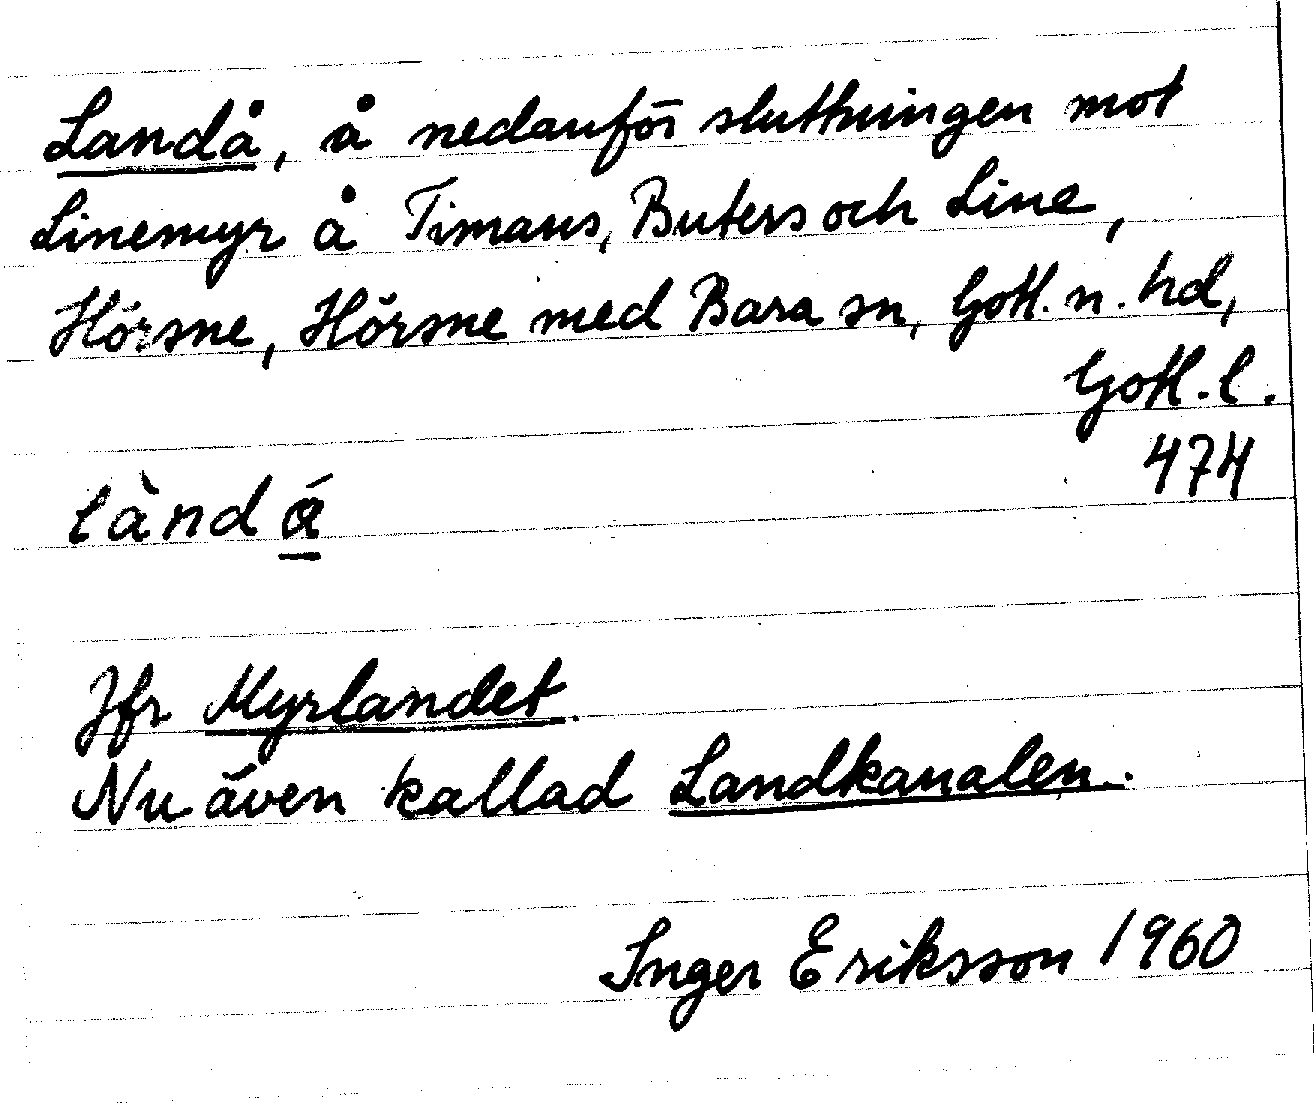 Landå, å nedanför sluttningen mot
Linemyr å Timans, Buters och Line,
Hörsne, Hörsne med Bara sn, Gotl. n. hd,
Gotl. l.
474
làndá
Jfr Myrlandet.
Nu även kallad Landkanalen.
Inger Eriksson 1960